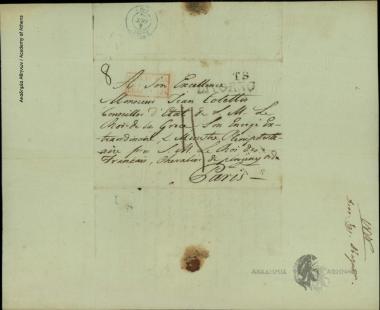 Ακαδημία Αθηνών / Academy of Athens
8
TS
A Son Excellence
Monsieur Jean Coletti
Conseiller d'Etat de S. M. Le
Roi de la Grece Son Envoyé Ex-
traordinaire & Ministre Plenipotenti-
aire près S. M. Le Roi des
Français, Chevalier de plusieurs ords
Paris
ΑΚΑΔΗΜΙΑ ΑΘΗΝΩΝ